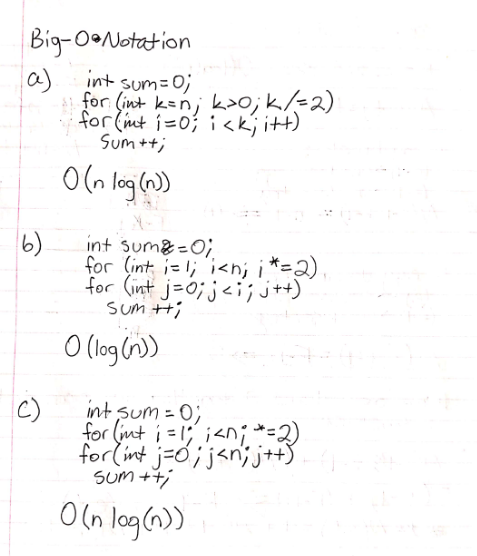 Big-O Notation
a) int sum=0;
for (int k=n; k>0; k/=2)
for (int i=0; i<k; i++)
sum++;
O(n log(n))
b) int sum=0;
for (int i=1; i<n; i*=2)
for (int j=0; j<i; j++)
sum++;
O(log(n))
c) int sum = 0;
for (int i=1; i<n; *=2)
for (int j=0; j<n; j++)
sum++;
O(n log(n))